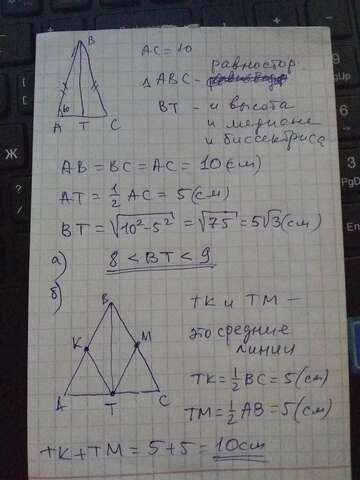 B
60
A T C
AC=10
△ABC - равностор
BT - и высота
и медиана
и биссектриса
AB = BC = AC = 10 (см)
AT = 1/2 AC = 5 (см)
BT = √(10²-5²) = √75 = 5√3 (см)
а) 8 < BT < 9
б)
B
K M
A T C
TK и TM -
это средние
линии
TK = 1/2 BC = 5 (см)
TM = 1/2 AB = 5 (см)
TK + TM = 5 + 5 = 10см